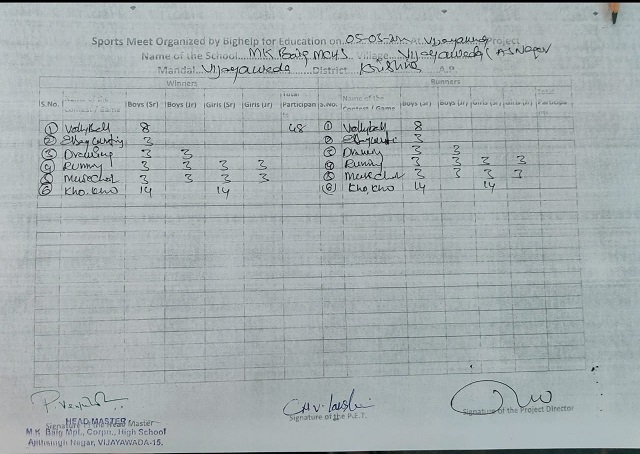 Sports Meet Organized by Bighelp for Education on 05-03- At Vijayawada Project
Name of the School MK Baig MCHS Village Vijayawada (A.S Nagar
Mandal Vijayawada District Krishna A.P
Winners Runners
S.No. Name of the Contest / Game Boys (Sr) Boys (Jr) Girls (Sr) Girls (Jr) Total Participants S.No. Name of the Contest / Game Boys (Sr) Boys (Jr) Girls (Sr) Girls (Jr) Total Participa
① Vollyball 8 48 ① Vollyball 8
② Essay 3 ② Essay 3
③ Drawing 3 3 ③ Drawing 3 3
④ Runny 3 3 3 3 ④ Runny 3 3 3 3
⑤ 3 3 3 3 ⑤ 3 3 3 3
⑥ Kho.kho 14 14 ⑥ Kho, kho 14 14
CH V. Lakshmi
Signature of the Head Master Signature of the P.E.T. Signature of the Project Director
HEAD MASTER
M.K. Baig Mpl., Corpn., High School
Ajithsingh Nagar, VIJAYAWADA-15.